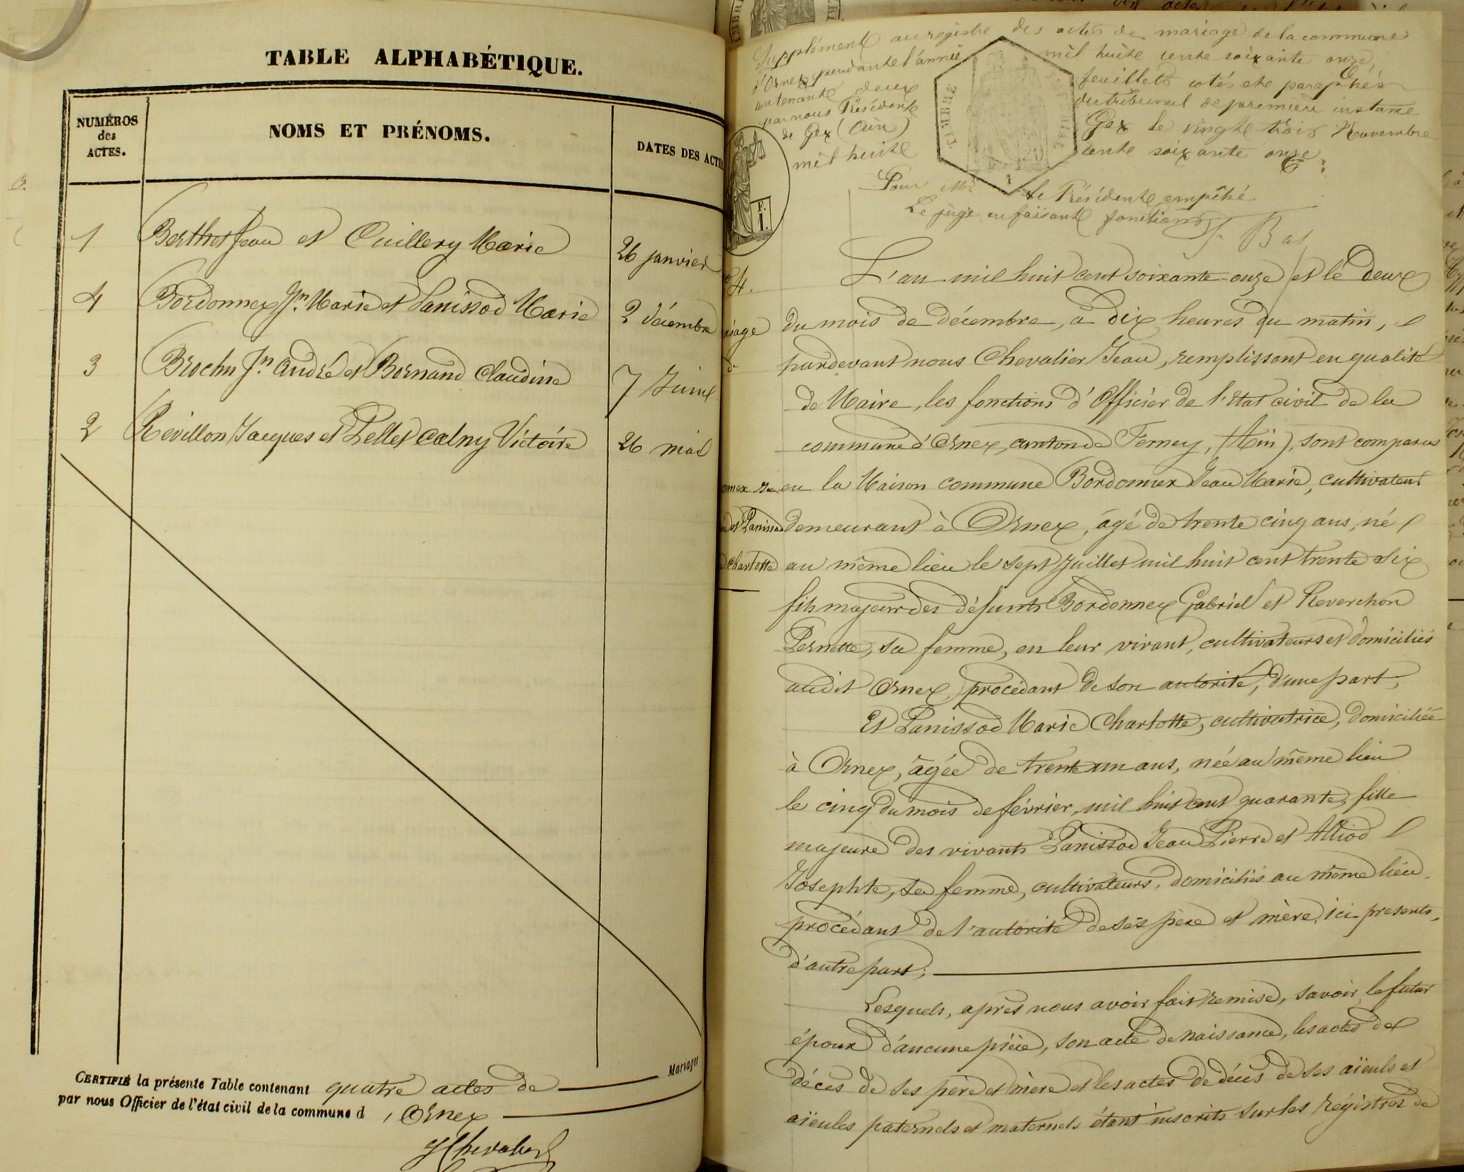 TABLE ALPHABÉTIQUE.
NUMÉROS
des
ACTES.
NOMS ET PRÉNOMS.
DATES DES ACTE
1 Berthet Jean et Cuillery Marie 26 janvier
4 Bordonnex Jn Marie et Panissod Marie 2 décembre
3 Brochu Jn André et Bornand Claudine 7 Juin
2 Revillon Jacques et Pellet Calny Victoire 26 mai
Mariages
CERTIFIÉ la présente Table contenant quatre actes de
par nous Officier de l'état civil de la commune d'Ornex
J Chevalier
Supplément au registre des actes de mariage de la commune
d'Ornex pendant l'année mil huit cent soixante onze,
contenant deux feuillets cotés et paraphés
par nous Président du tribunal de première instance
de Gex (Ain) Gex le vingt trois Novembre
mil huit cent soixante onze
TIMBRE
F.
1
Le Président empêché
Le juge en faisant fonctions
4.
L'an mil huit cent soixante onze et le deux
du mois de décembre, à dix heures du matin,
pardevant nous Chevalier Jean, remplissant en qualité
de Maire, les fonctions d'Officier de l'état civil de la
commune d'Ornex, canton de Ferney, (Ain), sont comparus
en la Maison commune Bordonnex Jean Marie, cultivateur
et Panissod demeurant à Ornex, âgé de trente cinq ans, né
Charlotte au même lieu le sept Juillet mil huit cent trente six
fils majeur des défunts Bordonnex Gabriel et Reverchon
Pernette, sa femme, en leur vivant, cultivateurs et domiciliés
audit Ornex, procédant de son autorité, d'une part,
Et Panissod Marie Charlotte, cultivatrice, domiciliée
à Ornex, âgée de trente un ans, née au même lieu
le cinq du mois de février mil huit cent quarante, fille
majeure des vivants Panissod Jean Pierre et Alliod
Josephte, sa femme, cultivateurs, domiciliés au même lieu,
procédant de l'autorité de ses père et mère, ici présents,
d'autre part;
Lesquels, après nous avoir fait remise, savoir, le futur
époux d'aucune pièce, son acte de naissance, les actes de
décès de ses père et mère et les actes de décès de ses aïeuls et
aïeules paternels et maternels étant inscrits sur les régistres de